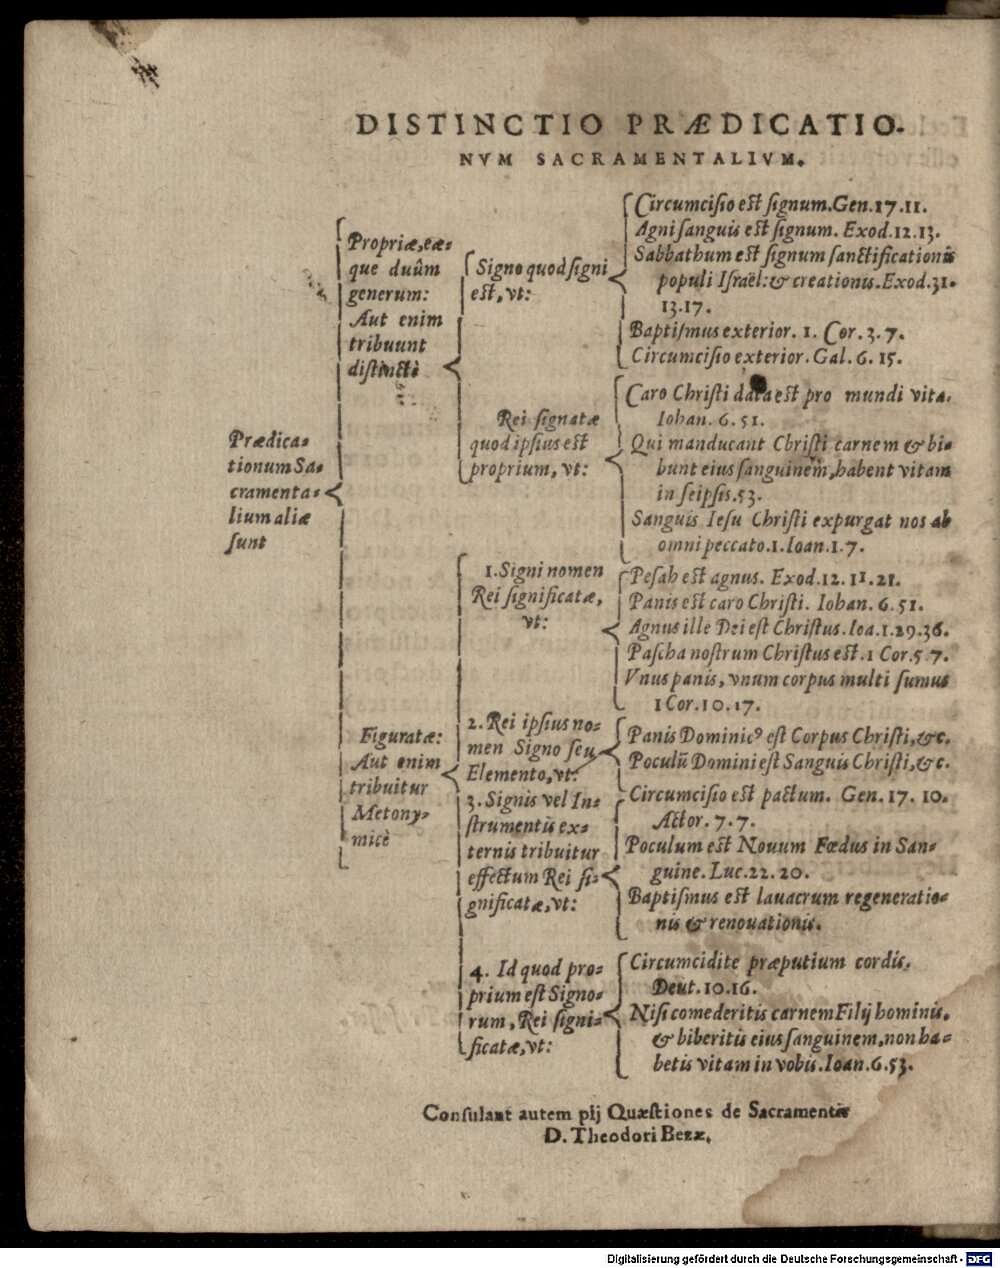 DISTINCTIO PRÆDICATIO-
NVM SACRAMENTALIVM.
Prædica-
tionum Sa-
cramenta-
lium aliæ
sunt
Propriæ, eæ-
que duûm
generum:
Aut enim
tribuunt
distinctè
Signo quod signi
est, vt:
Circumcisio est signum. Gen. 17.11.
Agni sanguis est signum. Exod. 12.13.
Sabbathum est signum sanctificationis
populi Israël: & creationis. Exod. 31.
13.17.
Baptismus exterior. 1. Cor. 3. 7.
Circumcisio exterior. Gal. 6. 15.
Rei signatæ
quod ipsius est
proprium, vt:
Caro Christi data est pro mundi vita.
Iohan. 6. 51.
Qui manducant Christi carnem & bi-
bunt eius sanguinem, habent vitam
in seipsis. 53.
Sanguis Iesu Christi expurgat nos ab
omni peccato. 1. Ioan. 1. 7.
Figuratæ:
Aut enim
tribuitur
Metony-
micè
1. Signi nomen
Rei significatæ,
vt:
Pesah est agnus. Exod. 12. 11. 21.
Panis est caro Christi. Iohan. 6. 51.
Agnus ille Dei est Christus. Ioa. 1. 29. 36.
Pascha nostrum Christus est. 1 Cor. 5 7.
Vnus panis, vnum corpus multi sumus
1 Cor. 10. 17.
2. Rei ipsius no-
men Signo seu
Elemento, vt:
Panis Dominicꝰ est Corpus Christi, &c.
Poculũ Domini est Sanguis Christi, &c.
3. Signis vel In-
strumentis ex-
ternis tribuitur
effectum Rei si-
gnificatæ, vt:
Circumcisio est pactum. Gen. 17. 10.
Actor. 7. 7.
Poculum est Nouum Fœdus in San-
guine. Luc. 22. 20.
Baptismus est lauacrum regeneratio-
nis & renouationis.
4. Id quod pro-
prium est Signo-
rum, Rei signi-
ficatæ, vt:
Circumcidite præputium cordis.
Deut. 10. 16.
Nisi comederitis carnem Filij hominis,
& biberitis eius sanguinem, non ha-
betis vitam in vobis. Ioan. 6. 53.
Consulant autem pij Quæstiones de Sacramentis
D. Theodori Bezæ.
Digitalisierung gefördert durch die Deutsche Forschungsgemeinschaft - DFG